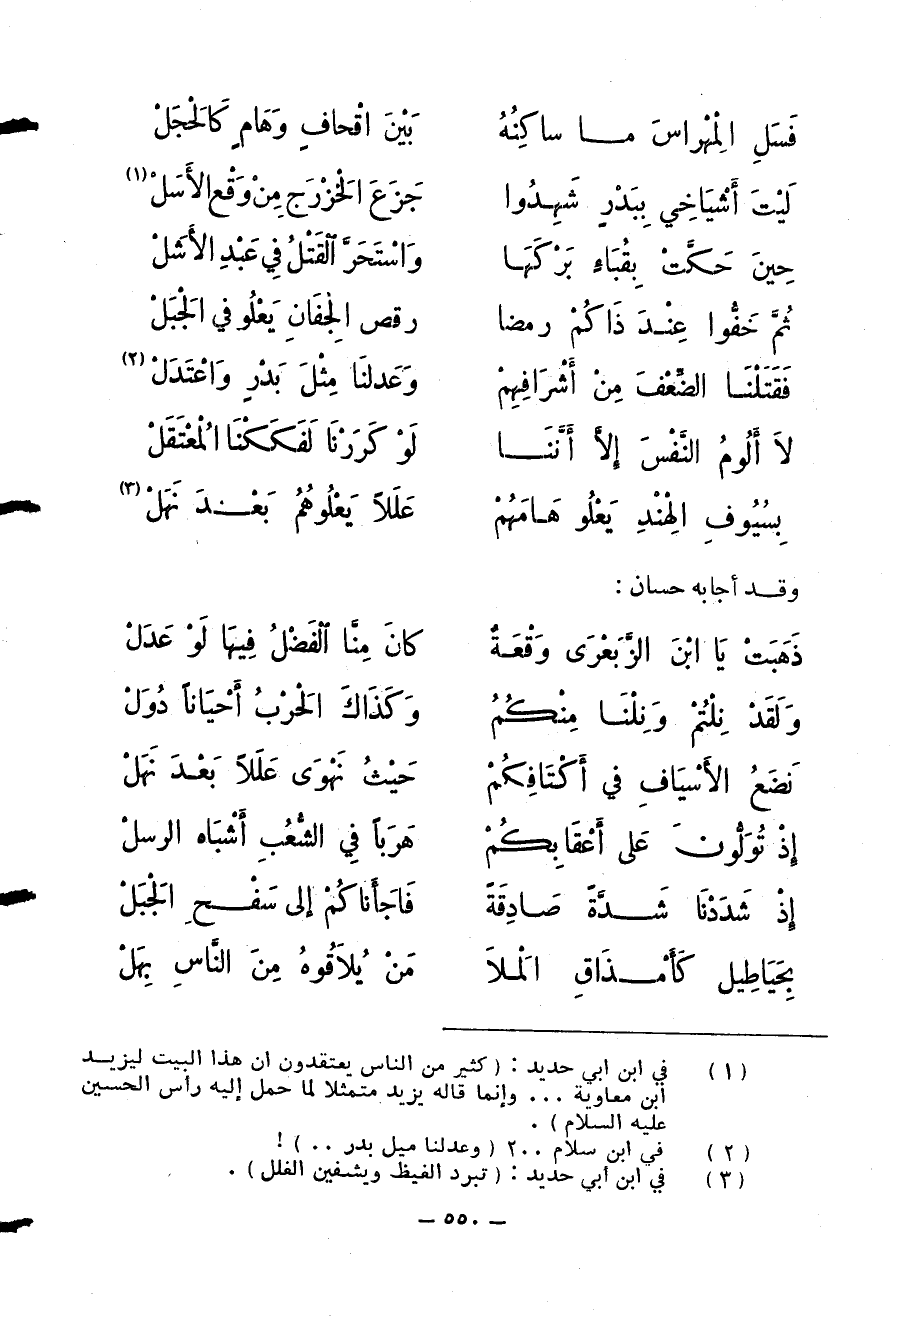 فَسَلِ الْمِهْراسَ مـــا ساكِنُهُ بَيْنَ اقْحافٍ وَهَامٍ كَالْحَجَلْ
لَيْتَ أَشْيَاخِي بِبَدْرٍ شَهِـدُوا جَزَعَ الْخَزْرَجِ مِنْ وَقْعِ الأَسَلْ (١)
حِينَ حَـكَّتْ بِقُبَاءٍ بَرْكَهَـا وَاسْتَحَرَّ الْقَتْلُ فِي عَبْدِ الأَشَلْ
ثُمَّ خَفُّوا عِنْـدَ ذَاكُمْ رمضا رقص الْجِفَانِ يَعْلُو فِي الْجَبَلْ
فَقَتَلْنَـا الضِّعْفَ مِنْ أَشْرَافِهِمْ وَعَدلنَا مِثْلَ بَدْرٍ وَاعْتَدَلْ (٢)
لاَ أَلُومُ النَّفْسَ إِلاَّ أَنَّنَـــا لَوْ كَرَرْنَا لَفَـكَـكْنَا الْمُعْتَقَلْ
بِسُيُوفِ الْهِنْدِ يَعْلُو هَـامَهُمْ عَلَلاً يَعْلُوهُمُ بَعْـــدَ نَهَلْ (٣)
وقـــد أجابه حسان :
ذَهَبَتْ يَا ابْنَ الزَّبَعْرَى وَقْعَـةٌ كانَ مِنَّا الْفَضْلُ فِيهَا لَوْ عَدَلْ
وَلَقَدْ نِلْتُمْ وَنِلْنَـا مِنْـكُمُ وَكَذَاكَ الْحَرْبُ أَحْيَاناً دُوَلْ
نَضَعُ الأَسْيَافَ فِي أَكْتَافِكُمْ حَيْثُ نَهْوَى عَلَلاً بَعْـدَ نَهَلْ
إِذْ تُوَلُّونَ عَلَى أَعْقَابِـكُمْ هَرَباً فِي الشُّعْبِ أَشْبَاه الرسلْ
إِذْ شَدَدْنَا شَـــدَّةً صَـادِقَةً فَاجَأْناكُمْ إِلى سَفْـــحِ الْجَبَلْ
بِخَيَاطِيل كَأَمْـــذَاقِ الْمَـلاَ مَنْ يُلاَقُوهُ مِنَ النَّاسِ يِهَلْ
(١) في ابن ابي حديد : ( كثير من الناس يعتقدون ان هذا البيت ليزيـــد
ابن معاوية ... وإنما قاله يزيد متمثلا لما حمل إليه رأس الحسين
عليه السلام ) .
(٢) في ابن سلام ٢٠٠ ( وعدلنا ميل بدر .. ) !
(٣) في ابن أبي حديد : ( تبرد الغيظ ويشفين الغلل ) .
— ٥٥٠ —